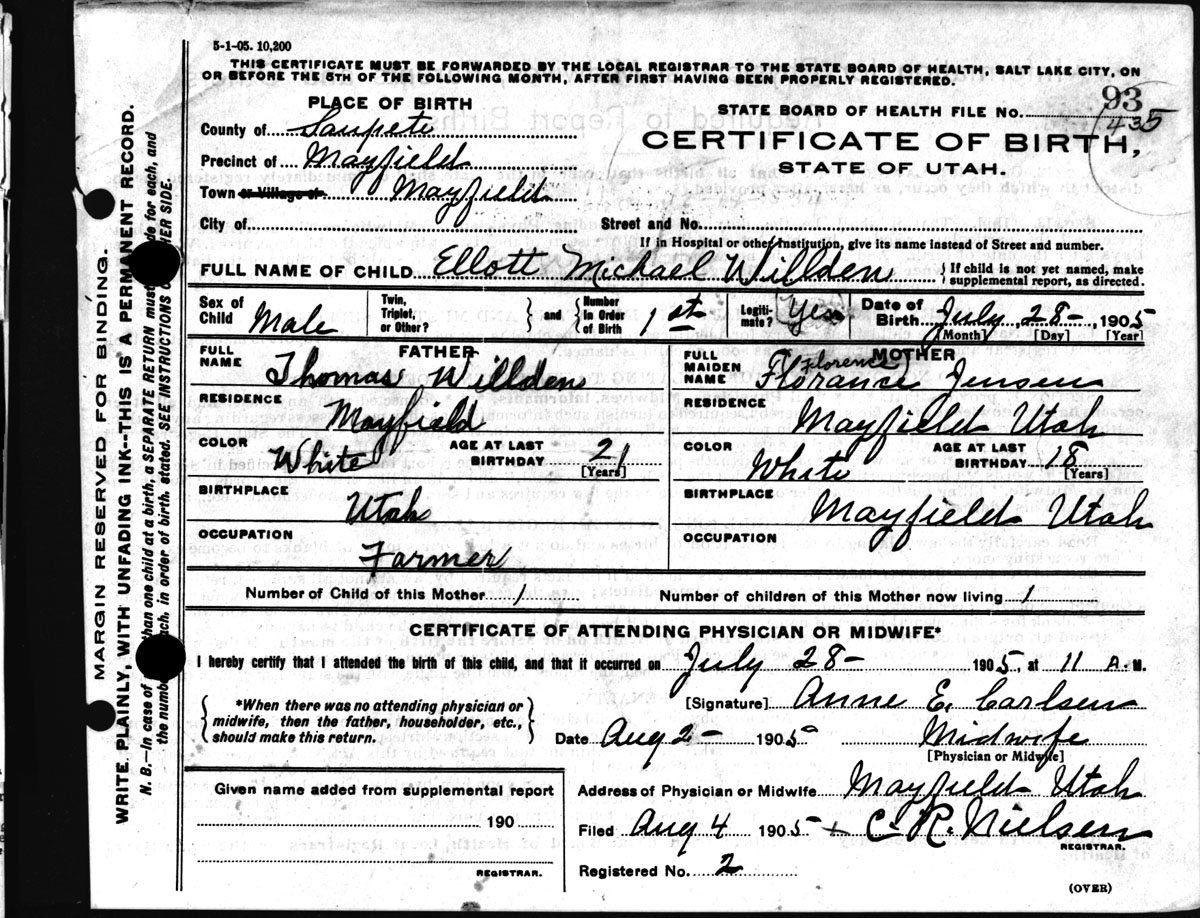 5-1-05. 10,200
THIS CERTIFICATE MUST BE FORWARDED BY THE LOCAL REGISTRAR TO THE STATE BOARD OF HEALTH, SALT LAKE CITY, ON
OR BEFORE THE 5TH OF THE FOLLOWING MONTH, AFTER FIRST HAVING BEEN PROPERLY REGISTERED.
PLACE OF BIRTH
County of Sanpete
Precinct of Mayfield
Town or Village of Mayfield
City of
STATE BOARD OF HEALTH FILE NO. 93
435
CERTIFICATE OF BIRTH,
STATE OF UTAH.
Street and No.
If in Hospital or other Institution, give its name instead of Street and number.
FULL NAME OF CHILD Ellott Michael Willden { If child is not yet named, make supplemental report, as directed.
Sex of Child Male Twin, Triplet, or Other? } and { Number In Order of Birth 1st Legitimate? Yes Date of Birth July 28- 1905
[Month] [Day] [Year]
FATHER
FULL NAME Thomas Willden
RESIDENCE Mayfield
COLOR White AGE AT LAST BIRTHDAY 21
[Years]
BIRTHPLACE Utah
OCCUPATION Farmer
MOTHER
FULL MAIDEN NAME Florance (Florence) Jensen
RESIDENCE Mayfield Utah
COLOR White AGE AT LAST BIRTHDAY 18
[Years]
BIRTHPLACE Mayfield Utah
OCCUPATION
Number of Child of this Mother 1 Number of children of this Mother now living 1
CERTIFICATE OF ATTENDING PHYSICIAN OR MIDWIFE*
I hereby certify that I attended the birth of this child, and that it occurred on July 28- 1905, at 11 A. M.
{ *When there was no attending physician or midwife, then the father, householder, etc., should make this return. }
[Signature] Anne E. Carlsen
Date Aug 2- 1905 Midwife
[Physician or Midwife]
Given name added from supplemental report
190
REGISTRAR.
Address of Physician or Midwife Mayfield Utah
Filed Aug 4 1905 C. R. Nielsen
REGISTRAR.
Registered No. 2
(OVER)
MARGIN RESERVED FOR BINDING.
WRITE PLAINLY, WITH UNFADING INK--THIS IS A PERMANENT RECORD.
N. B.—In case of than one child at a birth, a SEPARATE RETURN must de for each, and
the number ach, in order of birth, stated. SEE INSTRUCTIONS HER SIDE.